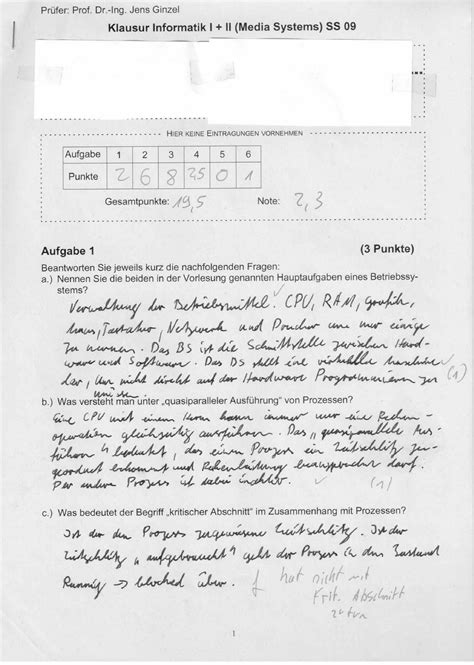 Prüfer: Prof. Dr.-Ing. Jens Ginzel
Klausur Informatik I + II (Media Systems) SS 09
HIER KEINE EINTRAGUNGEN VORNEHMEN
Aufgabe 1 2 3 4 5 6
Punkte 2 6 8 2,5 0 1
Gesamtpunkte: 19,5 Note: 2,3
Aufgabe 1 (3 Punkte)
Beantworten Sie jeweils kurz die nachfolgenden Fragen:
a.) Nennen Sie die beiden in der Vorlesung genannten Hauptaufgaben eines Betriebssy-
stems?
Verwaltung der Betriebsmittel. CPU, RAM, Grafik,
Maus, Tastatur, Netzwerk und Drucker um nur einige
zu nennen. Das BS ist die Schnittstelle zwischen Hard-
ware und Software. Das BS stellt eine virtuelle Maschine
dar, um nicht direkt auf der Hardware Programmieren zu (1)
müssen.
b.) Was versteht man unter „quasiparalleler Ausführung" von Prozessen?
Eine CPU mit einem Kern kann immer nur eine Rechen-
operation gleichzeitig ausführen. Das „quasiparallele Aus-
führen" bedeutet, das einen Prozess ein Zeitschlitz zu-
geordnet bekommt und Rechenleistung beanspruchen darf.
Der andere Prozess ist dabei inaktiv. (1)
c.) Was bedeutet der Begriff „kritischer Abschnitt" im Zusammenhang mit Prozessen?
Ist der den Prozess zugewiesene Zeitschlitz. Ist der
Zeitschlitz „aufgebraucht" geht der Prozess in den Zustand
Running → blocked über. f hat nicht mit
krit. Abschnitt
zu tun
1